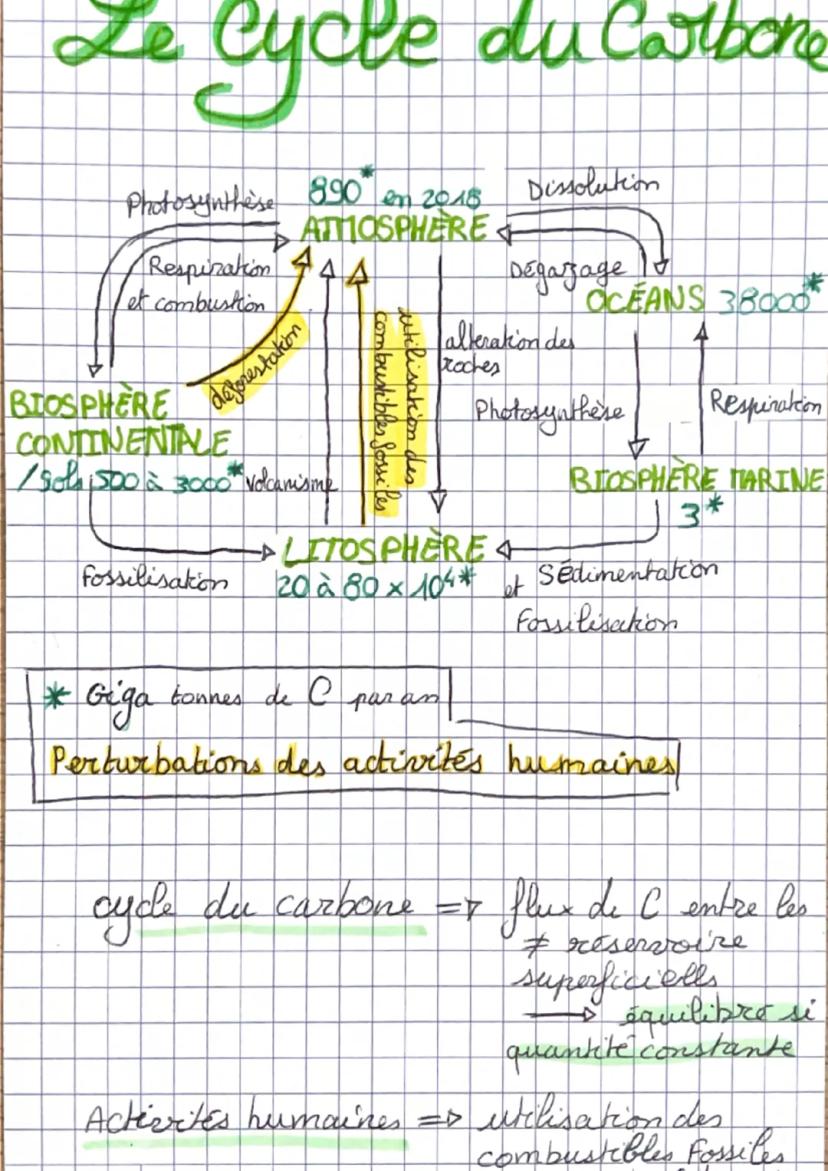 Le Cycle du Carbone
890* en 2018
ATMOSPHÈRE
Photosynthèse
Respiration
et combustion
Dissolution
Dégazage
OCÉANS 38000*
déforestation
utilisation des
combustibles fossiles
altération des
roches
Photosynthèse
Respiration
BIOSPHÈRE
CONTINENTALE
/ Sols 500 à 3000*
Volcanisme
BIOSPHÈRE MARINE
3*
LITOSPHÈRE
20 à 80 x 10⁴*
Fossilisation
et Sédimentation
Fossilisation
* Giga tonnes de C par an
Perturbations des activités humaines
cycle du carbone => flux de C entre les
≠ réservoire
superficiells
→ équilibre si
quantité constante
Activités humaines => utilisation des
combustibles Fossiles